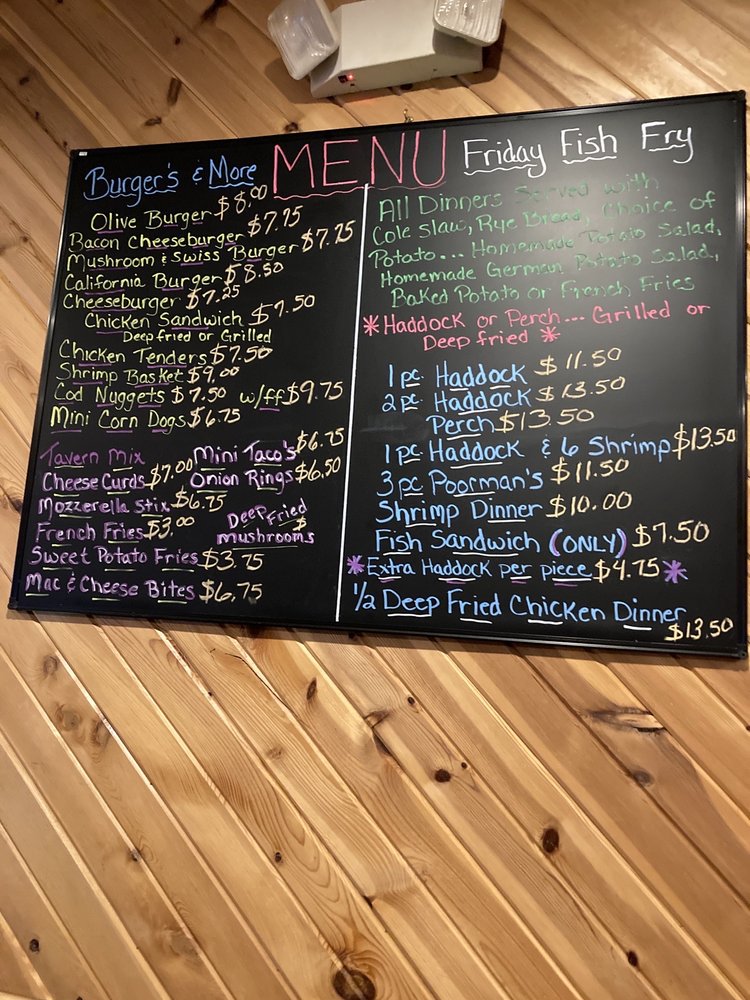 MENU
Burger's & More
Olive Burger $8.00
Bacon Cheeseburger $7.75
Mushroom & Swiss Burger $7.25
California Burger $8.50
Cheeseburger $7.25
Chicken Sandwich $7.50
Deep fried or Grilled
Chicken Tenders $7.50
Shrimp Basket $9.00
Cod Nuggets $7.50 w/ff $9.75
Mini Corn Dogs $6.75
Tavern Mix
Cheese Curds $7.00
Mozzerella Stix $6.75
French Fries $3.00
Sweet Potato Fries $3.75
Mac & Cheese Bites $6.75
Mini Taco's $6.75
Onion Rings $6.50
Deep Fried
mushrooms $
Friday Fish Fry
All Dinners Served with
Cole Slaw, Rye Bread, Choice of
Potato... Homemade Potato Salad,
Homemade German Potato Salad,
Baked Potato or French Fries
*Haddock or Perch... Grilled or
Deep fried *
1 pc Haddock $11.50
2 pc Haddock $13.50
Perch $13.50
1 pc Haddock & 6 Shrimp $13.50
3 pc Poorman's $11.50
Shrimp Dinner $10.00
Fish Sandwich (ONLY) $7.50
*Extra Haddock per piece $4.75*
1/2 Deep Fried Chicken Dinner
$13.50